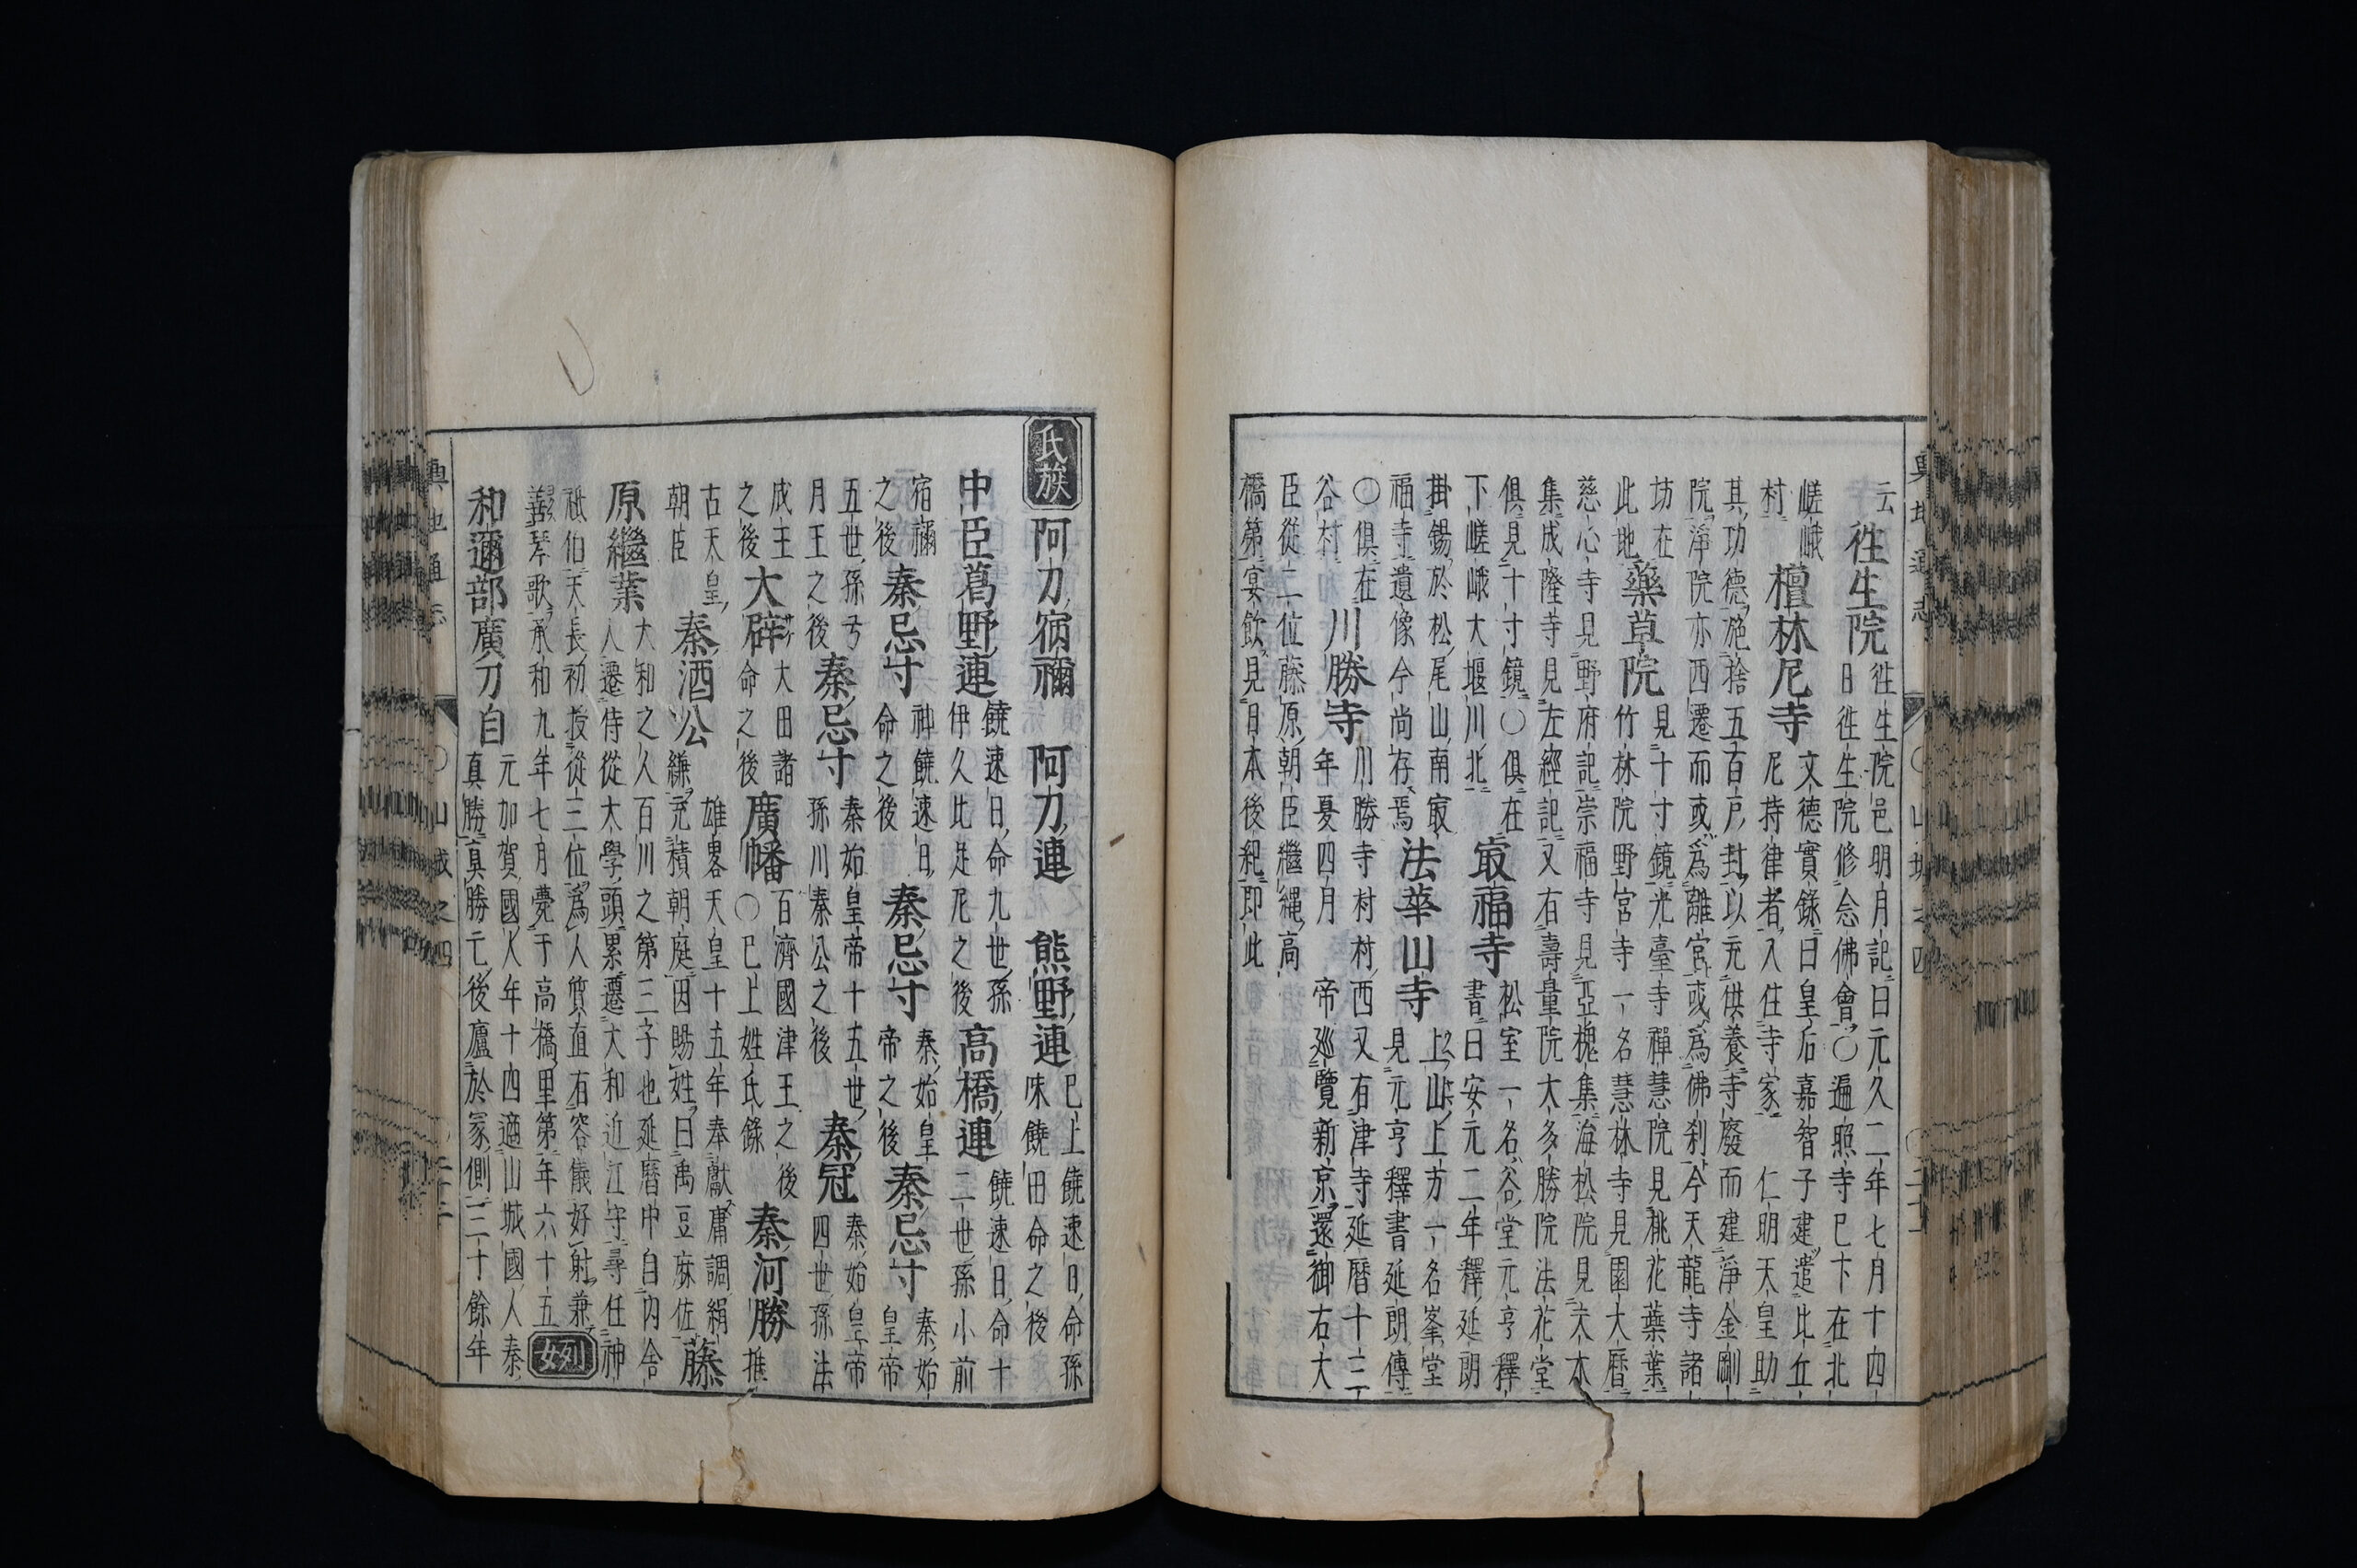 輿地通志 ○山城之四 二十一
云 徃生院
徃生院邑明月記曰元久二年七月十四
日徃生院修念佛會○遍照寺已下在北
嵯峨
村
檀林尼寺
文德實錄曰皇后嘉智子建遣比丘
尼持律者入住寺家 仁明天皇助
其功德施捨五百戶封以充供養寺廢而建淨金剛
院淨院亦西遷而或爲離宮或爲佛刹今天龍寺諸
坊在
此地
藥草院
見十寸鏡光臺寺禪慧院見桃花蘂葉
竹林院野宮寺一名慧林寺見園大曆
慈心寺見野府記崇福寺見亞槐集海松院見夫木
集成隆寺見左經記又右壽量院大多勝院法花堂
俱見十寸鏡○俱在
下嵯峨大堰川北
㝡福寺
松室一名谷堂元亨釋
書曰安元二年釋延朗
掛錫於松尾山南㝡
福寺遺像今尚存焉
法華山寺
上山上方一名峯堂
見元亨釋書延朗傳
○俱在
谷村
川勝寺
川勝寺村村西又有津寺延曆十三
年夏四月 帝廵覽新京還御右大
臣從二位藤原朝臣繼縄高
橋第宴飲見日本後紀即此
氏族 阿刀宿禰 阿刀連 熊野連
已上饒速日命孫
味饒田命之後
中臣葛野連
饒速日命九世孫
伊久比足尼之後
高橋連
饒速日命十
二世孫小前
宿禰
之後
秦忌寸
神饒速日
命之後
秦忌寸
秦始皇
帝之後
秦忌寸
秦始
皇帝
五世孫弓
月王之後
秦忌寸
秦始皇帝十五世
孫川秦公之後
秦冠
秦始皇帝
四世孫法
成王
之後
大辟
大田諸
命之後
廣幡
百濟國津王之後
○已上姓氏錄
秦河勝
推
古天皇
朝臣
秦酒公
雄畧天皇十五年奉獻庸調絹
縑充積朝庭因賜姓曰禹豆麻佐
藤
原繼業
大和之人百川之第三子也延曆中自内舍
人遷侍從大學頭累遷大和近江守尋任神
祇伯天長初授從三位爲人質直有容儀好射兼
善琴歌承和九年七月薨于高橋里第年六十五
列女
和邇部廣刀自
元加賀國人年十四適山城國人秦
真勝真勝亡後廬於冢側三十餘年
輿地通志 ○山城之四